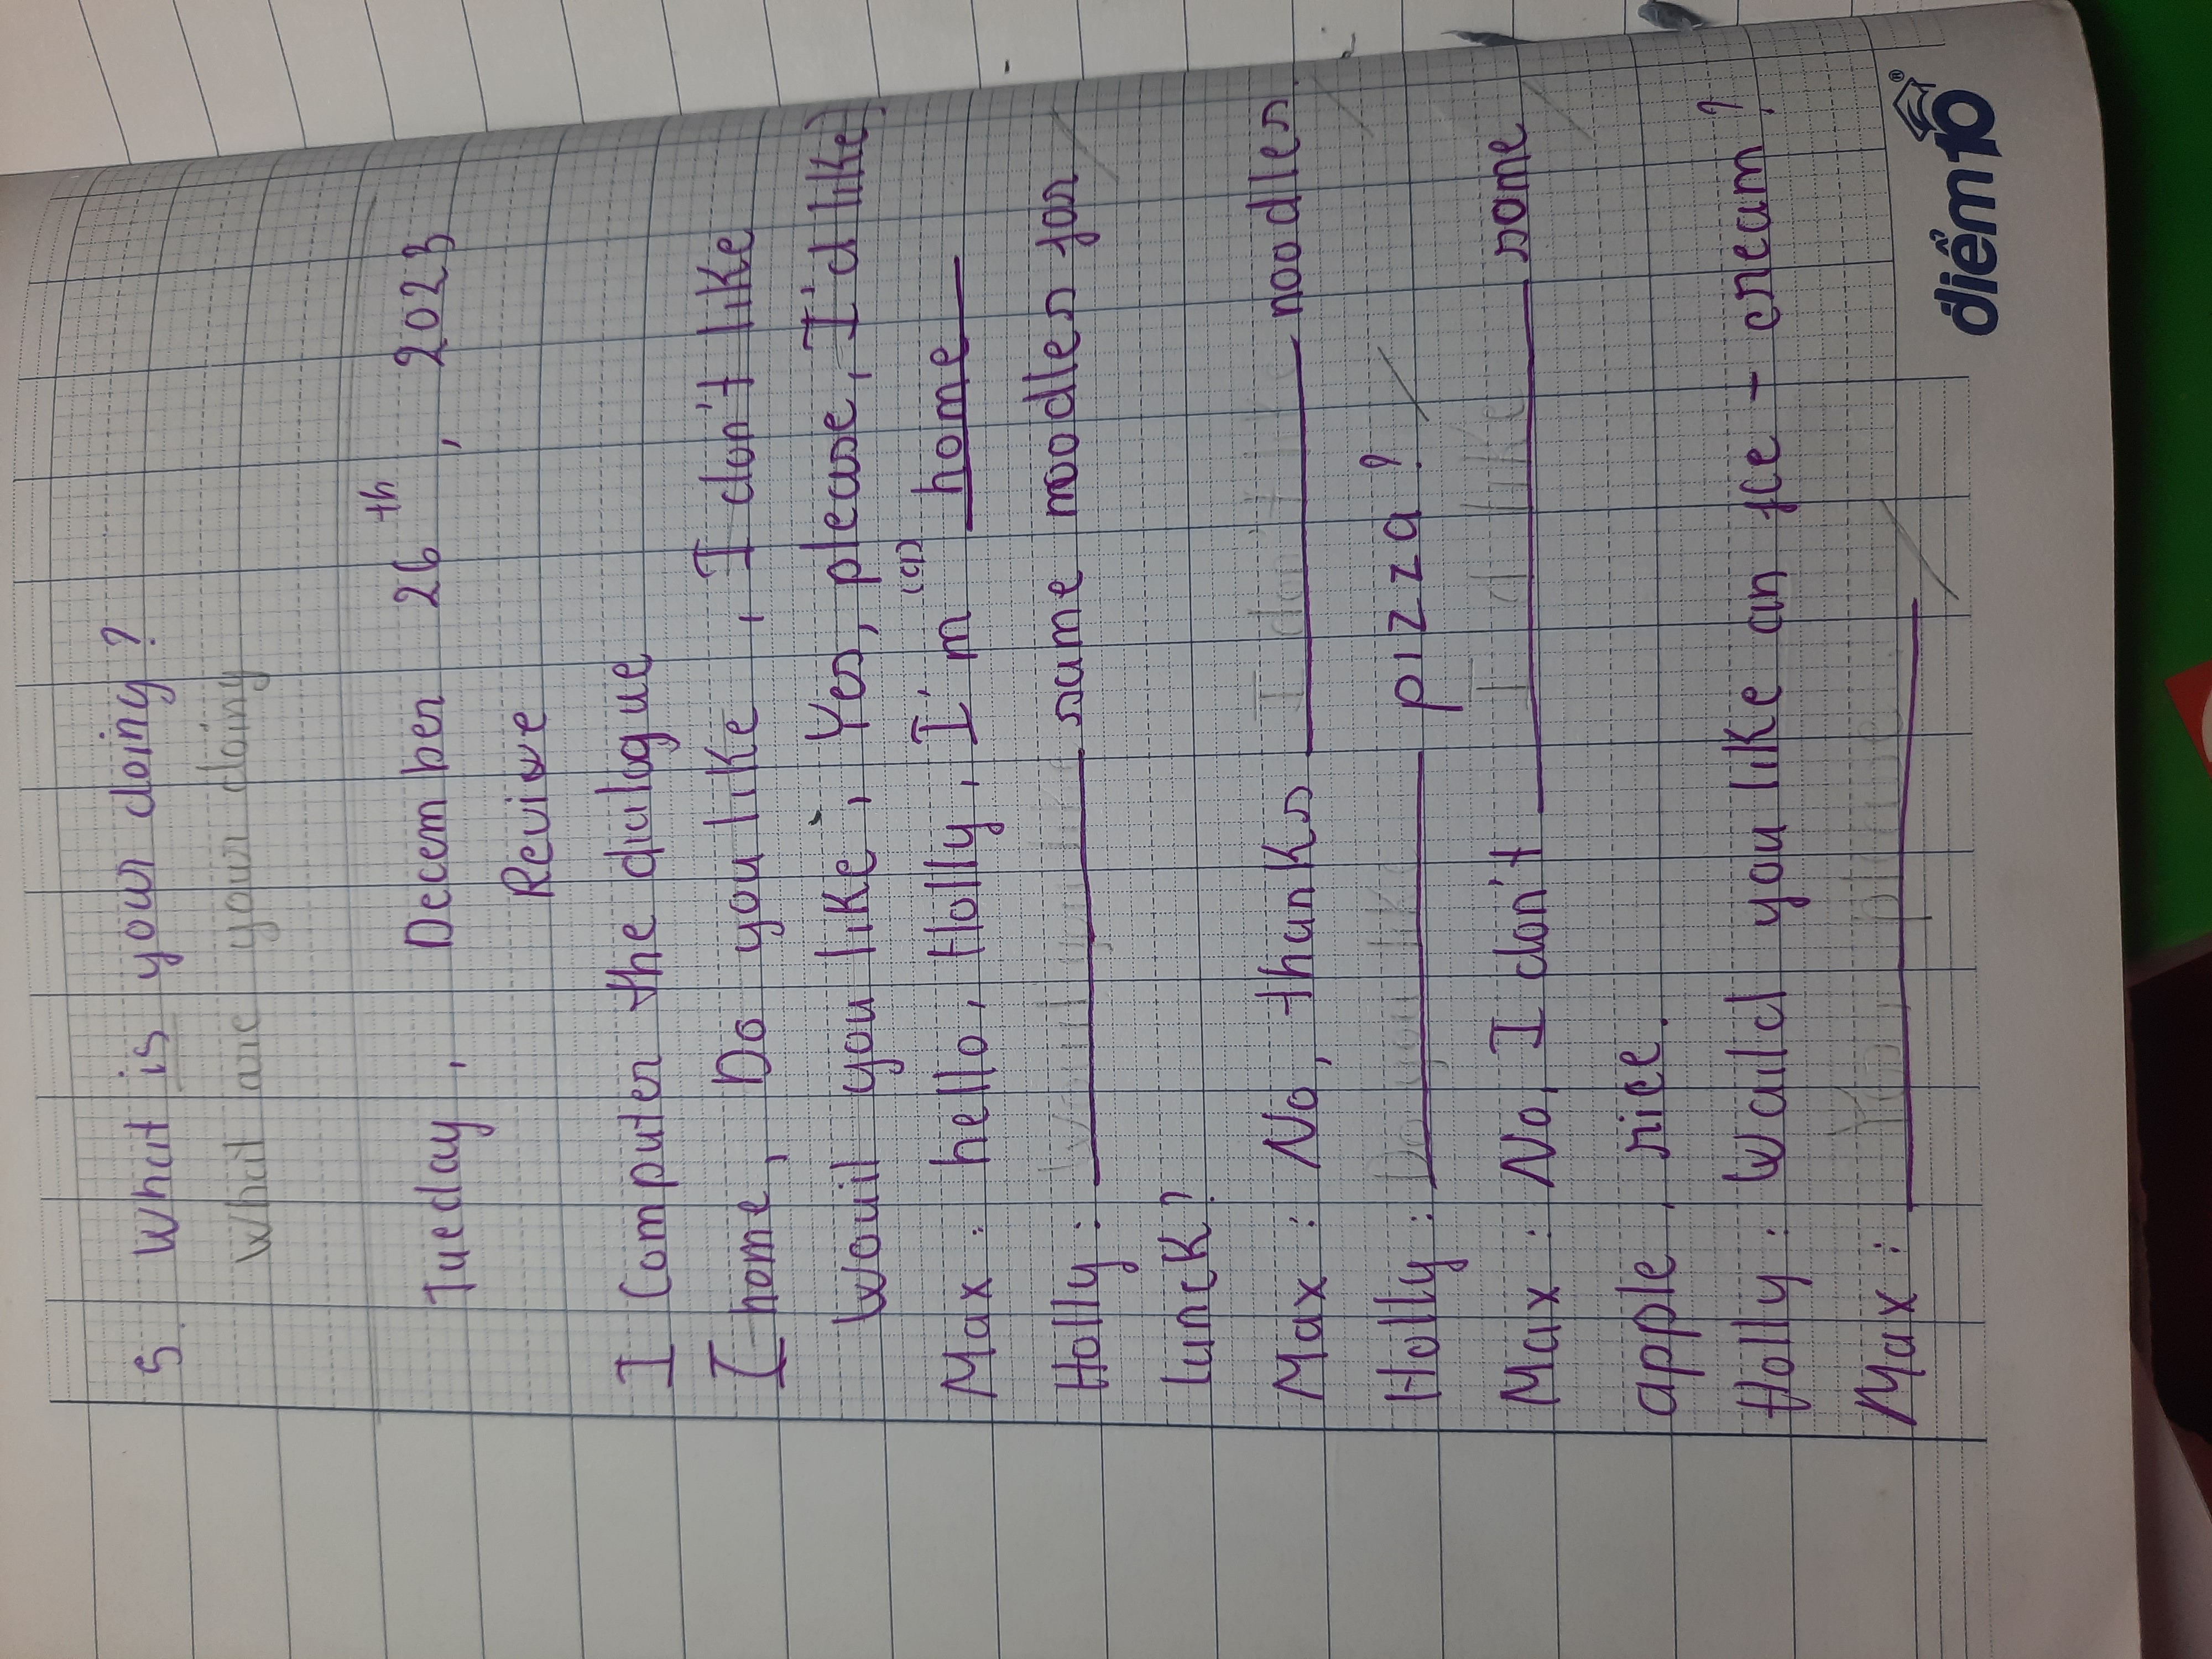 5. What is your doing?
What are your doing
Tueday, December 26th, 2023
Reviwe
I Computer the dialogue
(home, Do you like, I don't like
Wouil you like, Yes, please, I'd like)
Max: hello, Holly, I'm (a) home
Holly: Would you like same noodles for
lunck?
Max: No, thanks I don't like noodles.
Holly: Do you like pizza?
Max: No, I don't I'd like some
apple, rice.
Holly: Would you like an Ice-cream?
Max: Yes, please
điểm10®